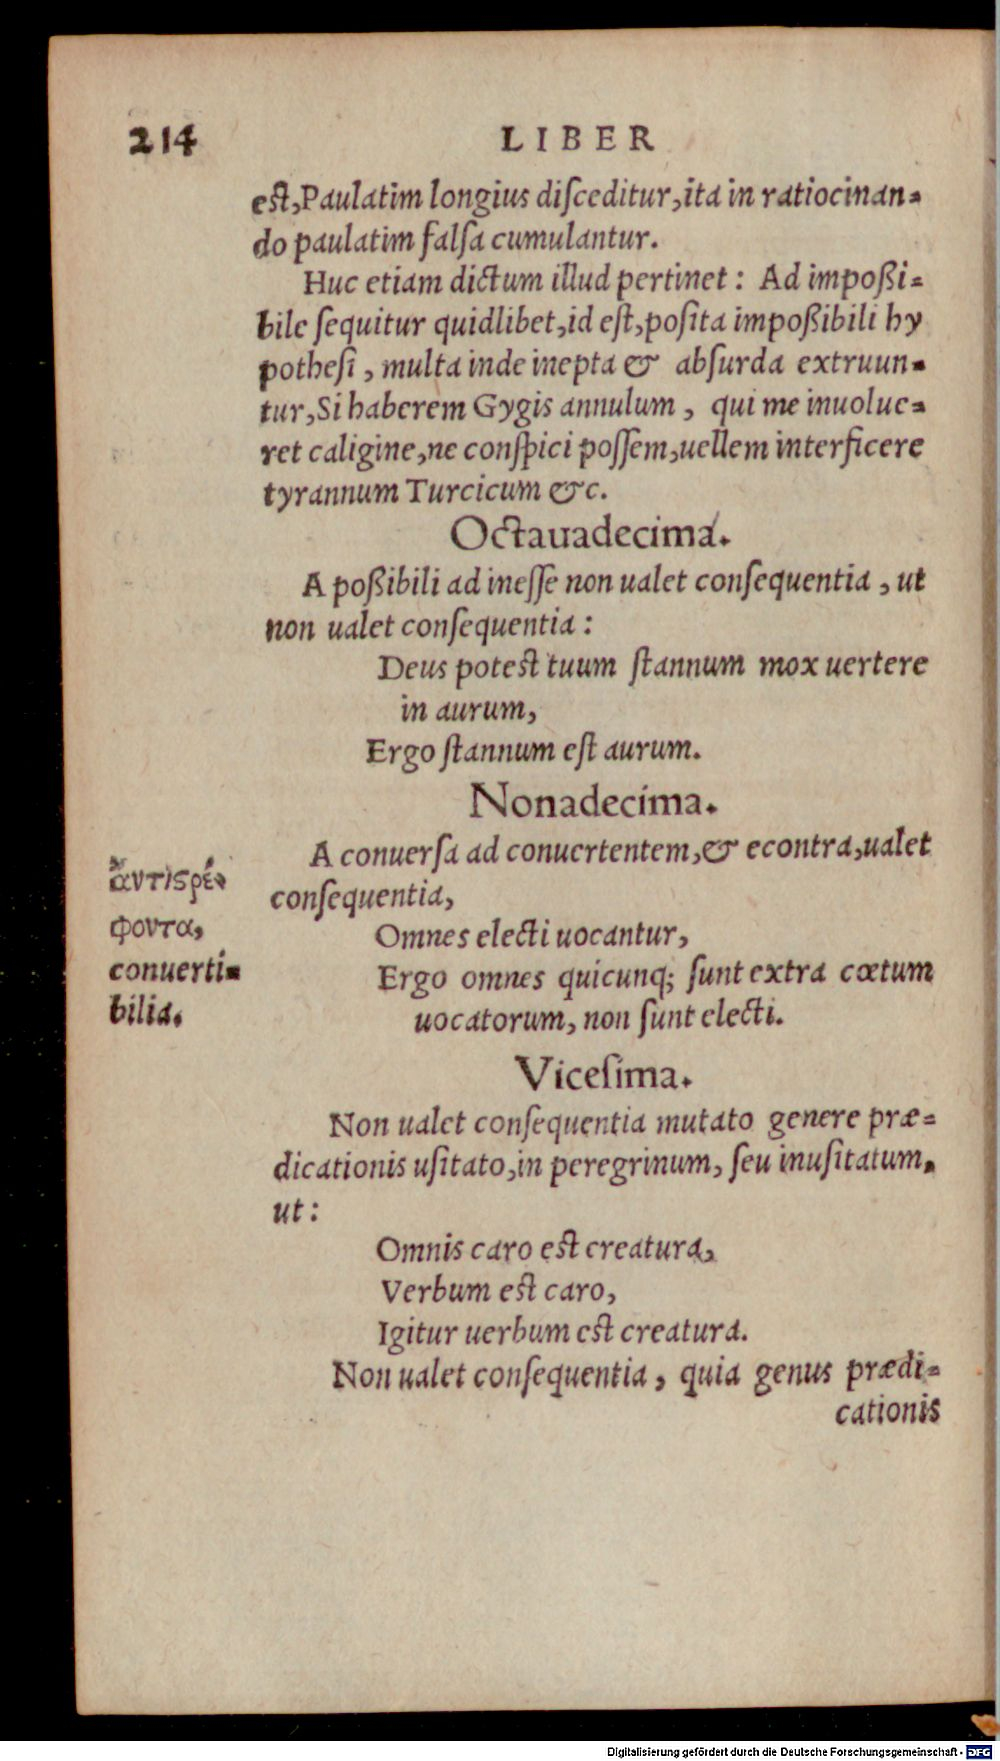 214
LIBER
est, Paulatim longius disceditur, ita in ratiocinan-
do paulatim falsa cumulantur.
Huc etiam dictum illud pertinet: Ad impoßi-
bile sequitur quidlibet, id est, posita impoßibili hy
pothesi, multa inde inepta & absurda extruun-
tur, Si haberem Gygis annulum, qui me inuolue-
ret caligine, ne conspici possem, uellem interficere
tyrannum Turcicum &c.
Octauadecima.
A poßibili ad inesse non ualet consequentia, ut
non ualet consequentia:
Deus potest tuum stannum mox uertere
in aurum,
Ergo stannum est aurum.
Nonadecima.
A conuersa ad conuertentem, & econtra, ualet
consequentia,
ἀντιϛρέ-
φοντα,
conuerti-
bilia.
Omnes electi uocantur,
Ergo omnes quicunq; sunt extra cœtum
uocatorum, non sunt electi.
Vicesima.
Non ualet consequentia mutato genere præ-
dicationis usitato, in peregrinum, seu inusitatum.
ut:
Omnis caro est creatura,
Verbum est caro,
Igitur uerbum est creatura.
Non ualet consequentia, quia genus prædi-
cationis
Digitalisierung gefördert durch die Deutsche Forschungsgemeinschaft - DFG